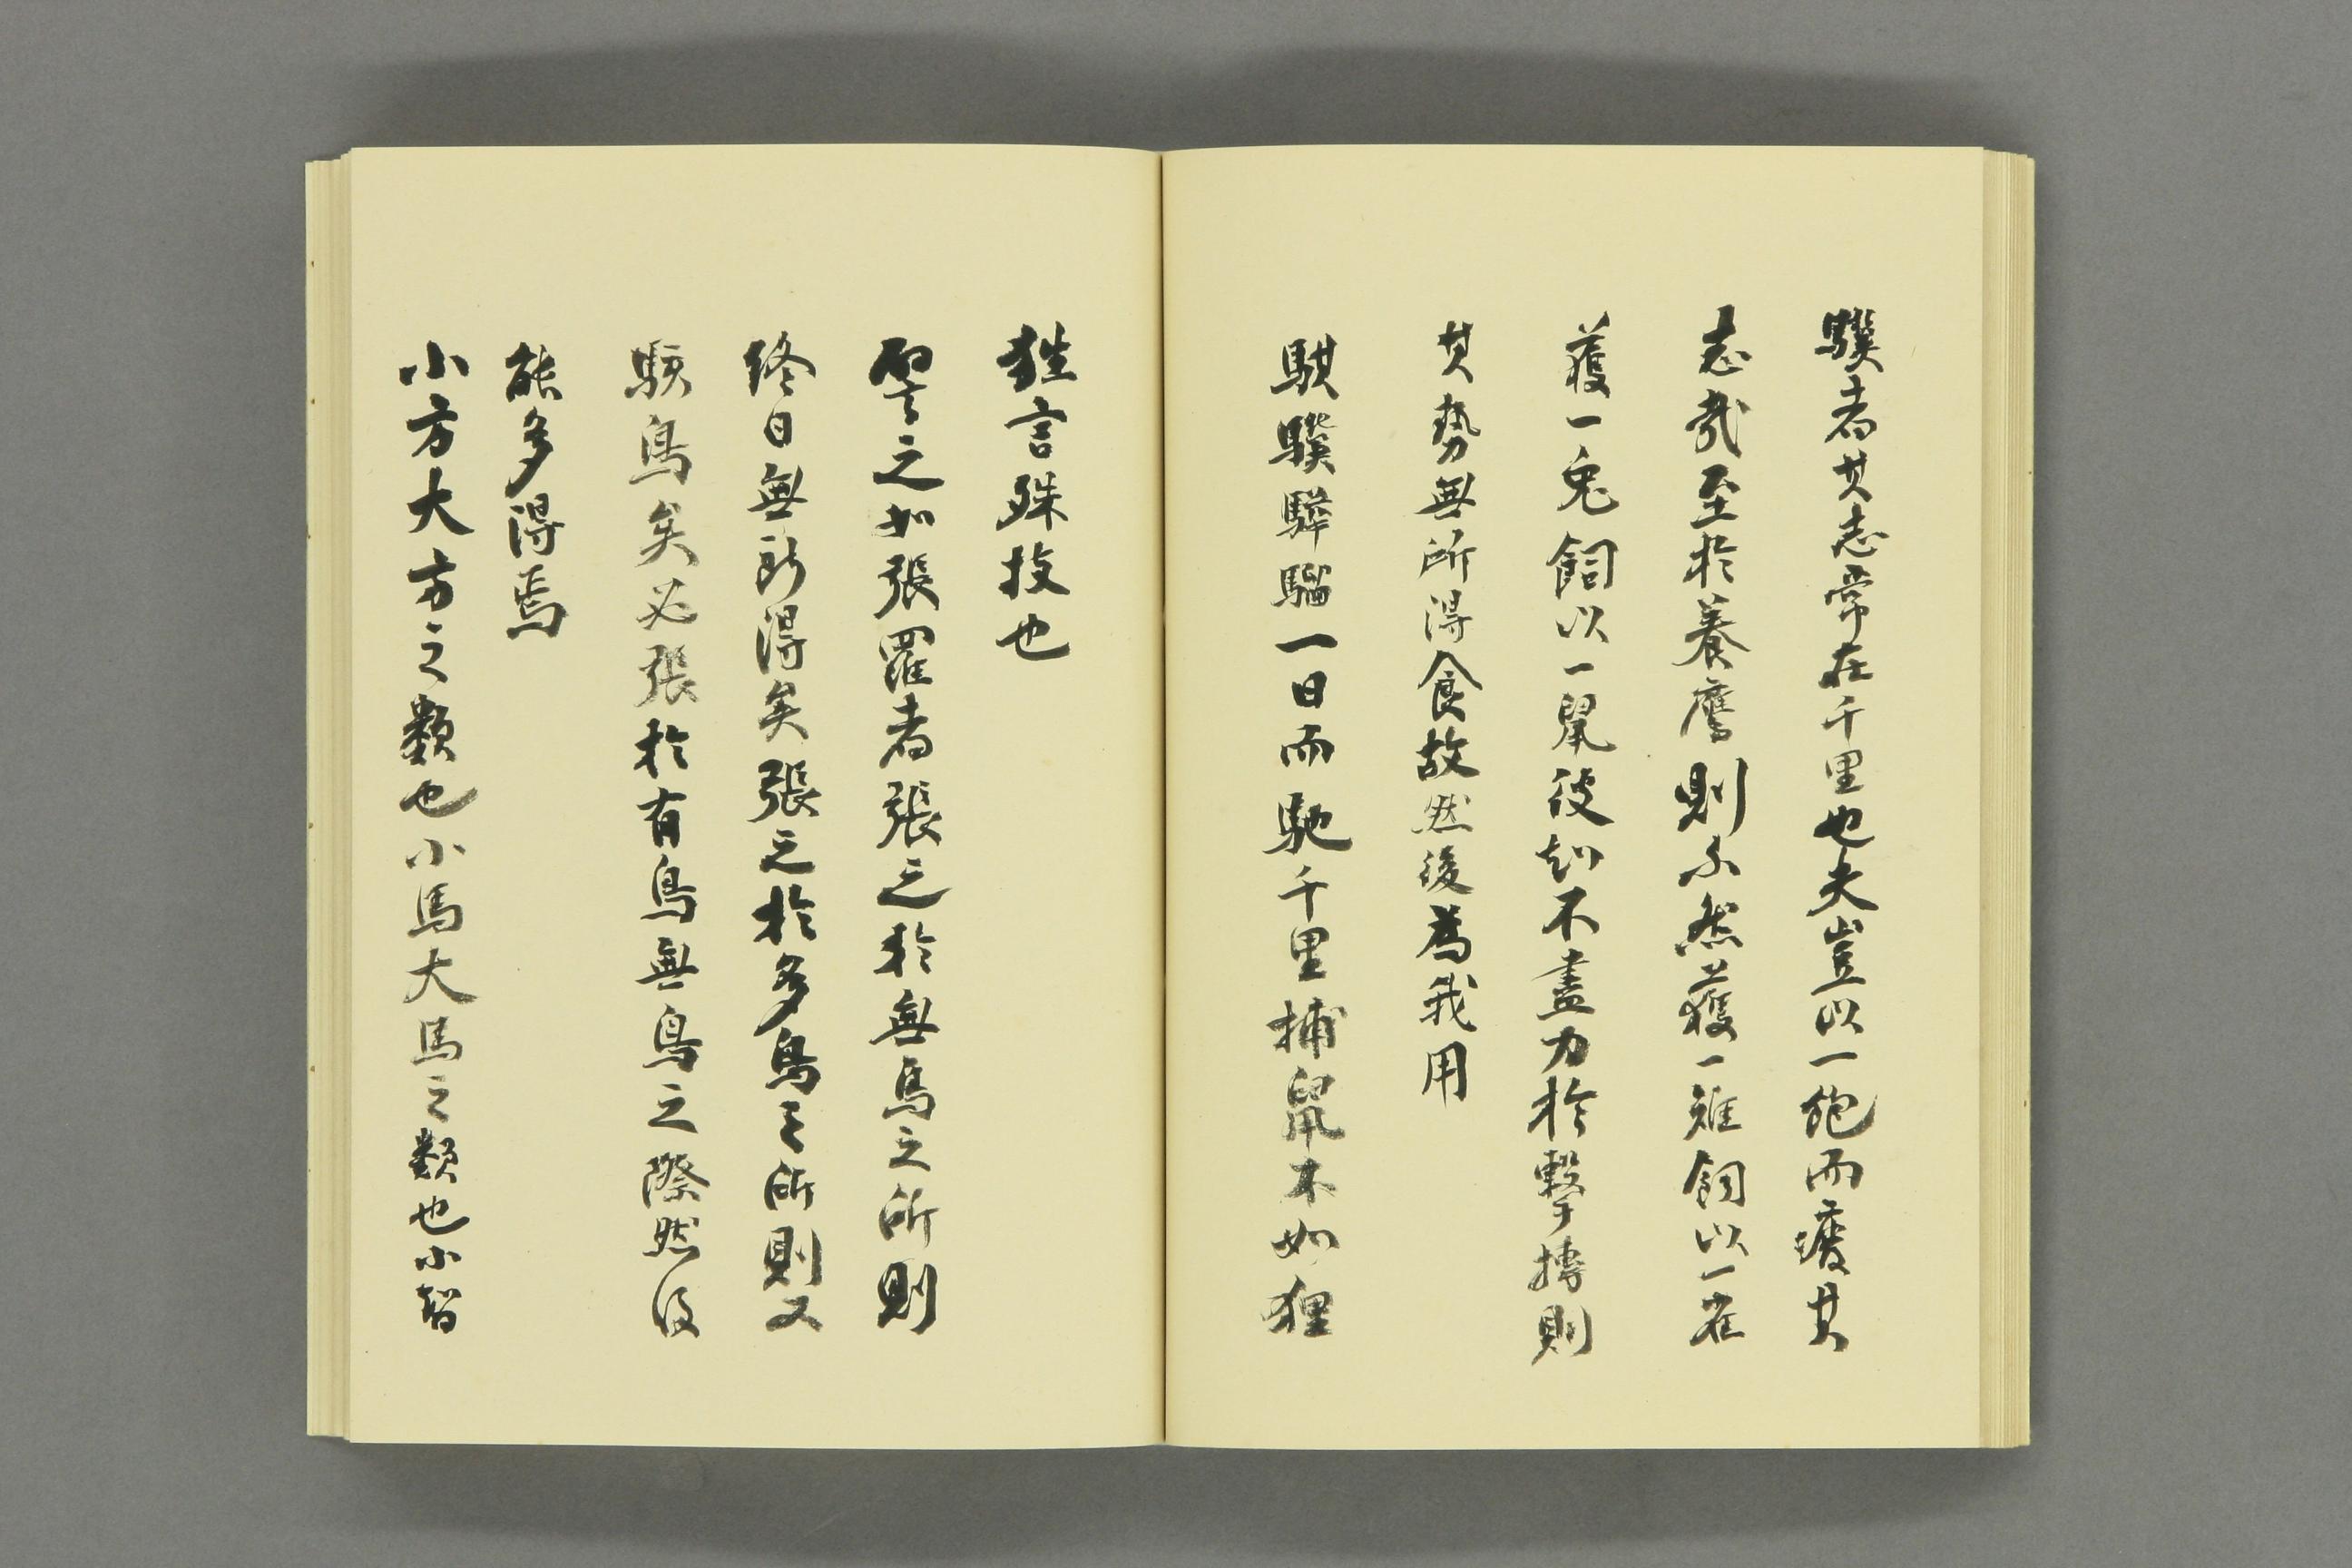 驥者其志常在千里也夫豈以一飽而廢其
志哉至於養鷹則不然獲一雉飼以一雀
獲一兎飼以一鼠彼知不盡力於擊搏則
其勢無所得食故然後為我用
騏驥驊騮一日而馳千里捕鼠不如狸
狌言殊技也
譬之如張羅者張之於無鳥之所則
終日無所得矣張之於多鳥之所則又
駭鳥矣必張於有鳥無鳥之際然後
能多得焉
小方大方之類也小馬大馬之類也小智